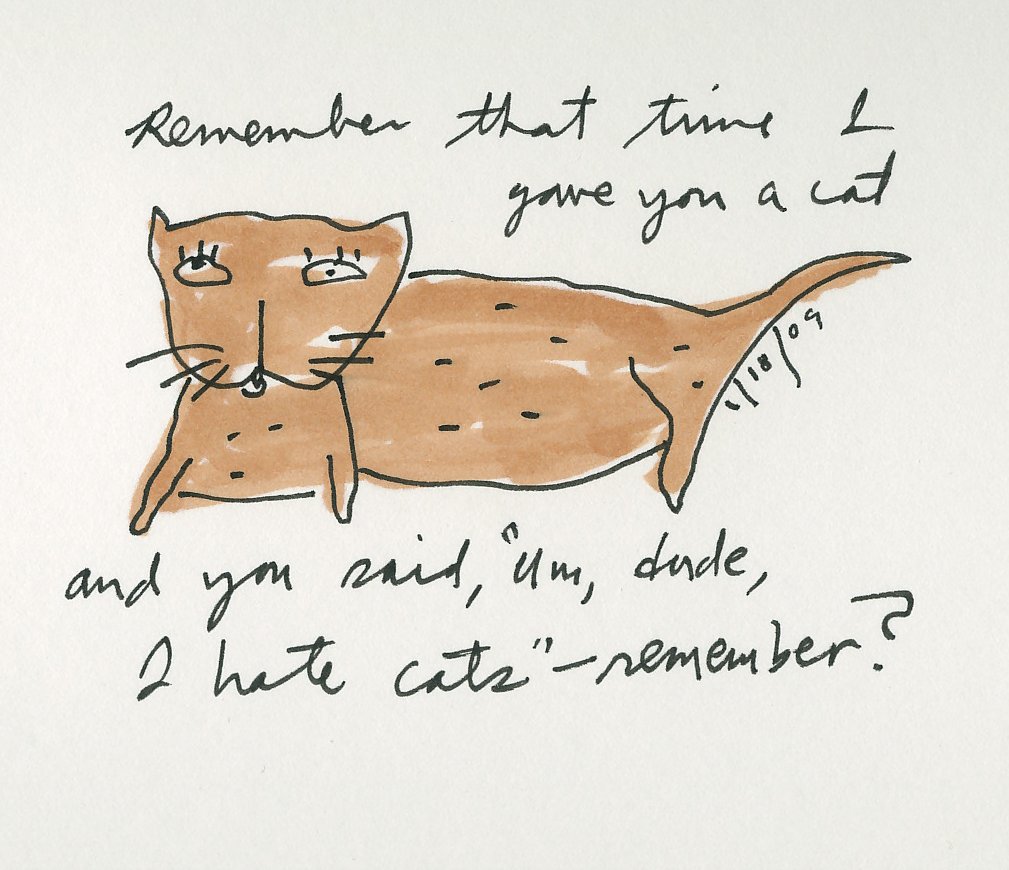 Remember that time I
gave you a cat
1/18/09
and you said, "Um, dude,
I hate cats" – remember?